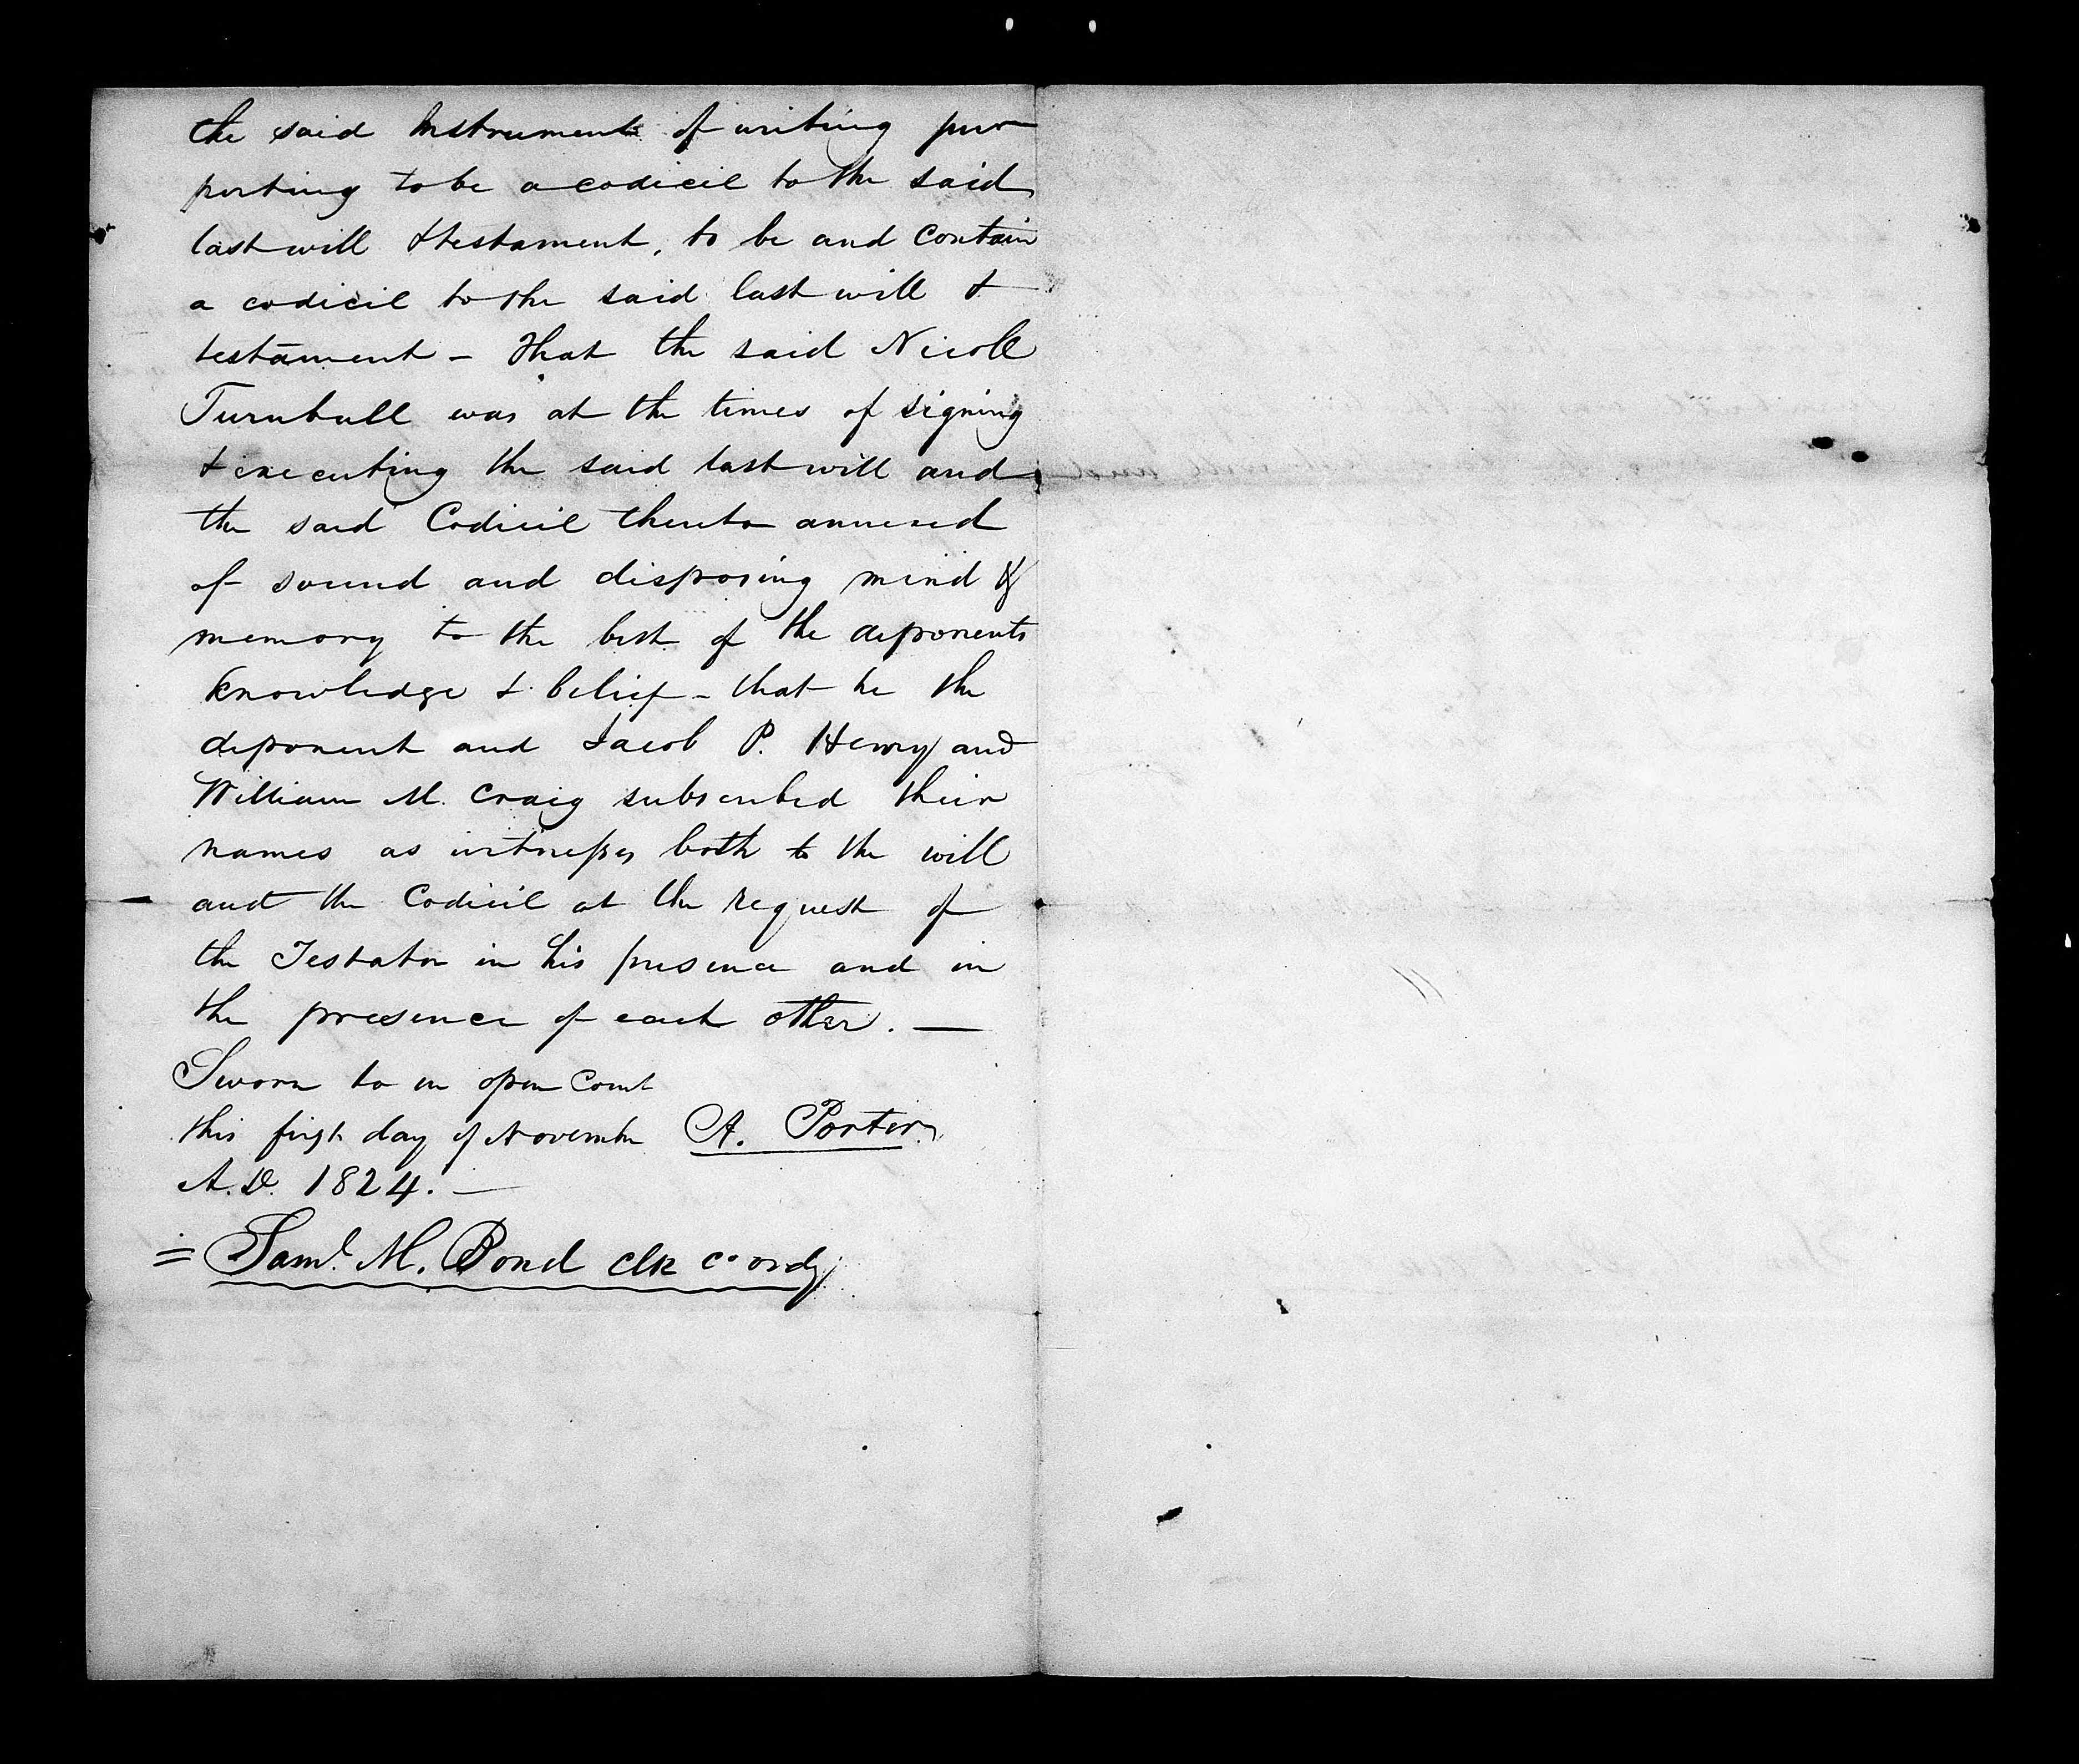 the said Instrument of writing pur
porting to be a codicil to the said
last will & testament, to be and contain
a codicil to the said last will &
testament - That the said Nicoll
Turnbull was at the times of signing
& executing the said last will and
the said Codicil thereto annexed
of sound and disposing mind &
memory to the best of the deponents
knowledge & belief - that he the
deponent and Jacob P. Henry and
William M. Craig subscribed their
names as witnesses both to the will
and the Codicil at the request of
the Testator in his presence and in
the presence of each other. —
Sworn to in open Court
this first day of November A. Porter
A.D. 1824. —
= Saml. M. Bond clk c. ordy